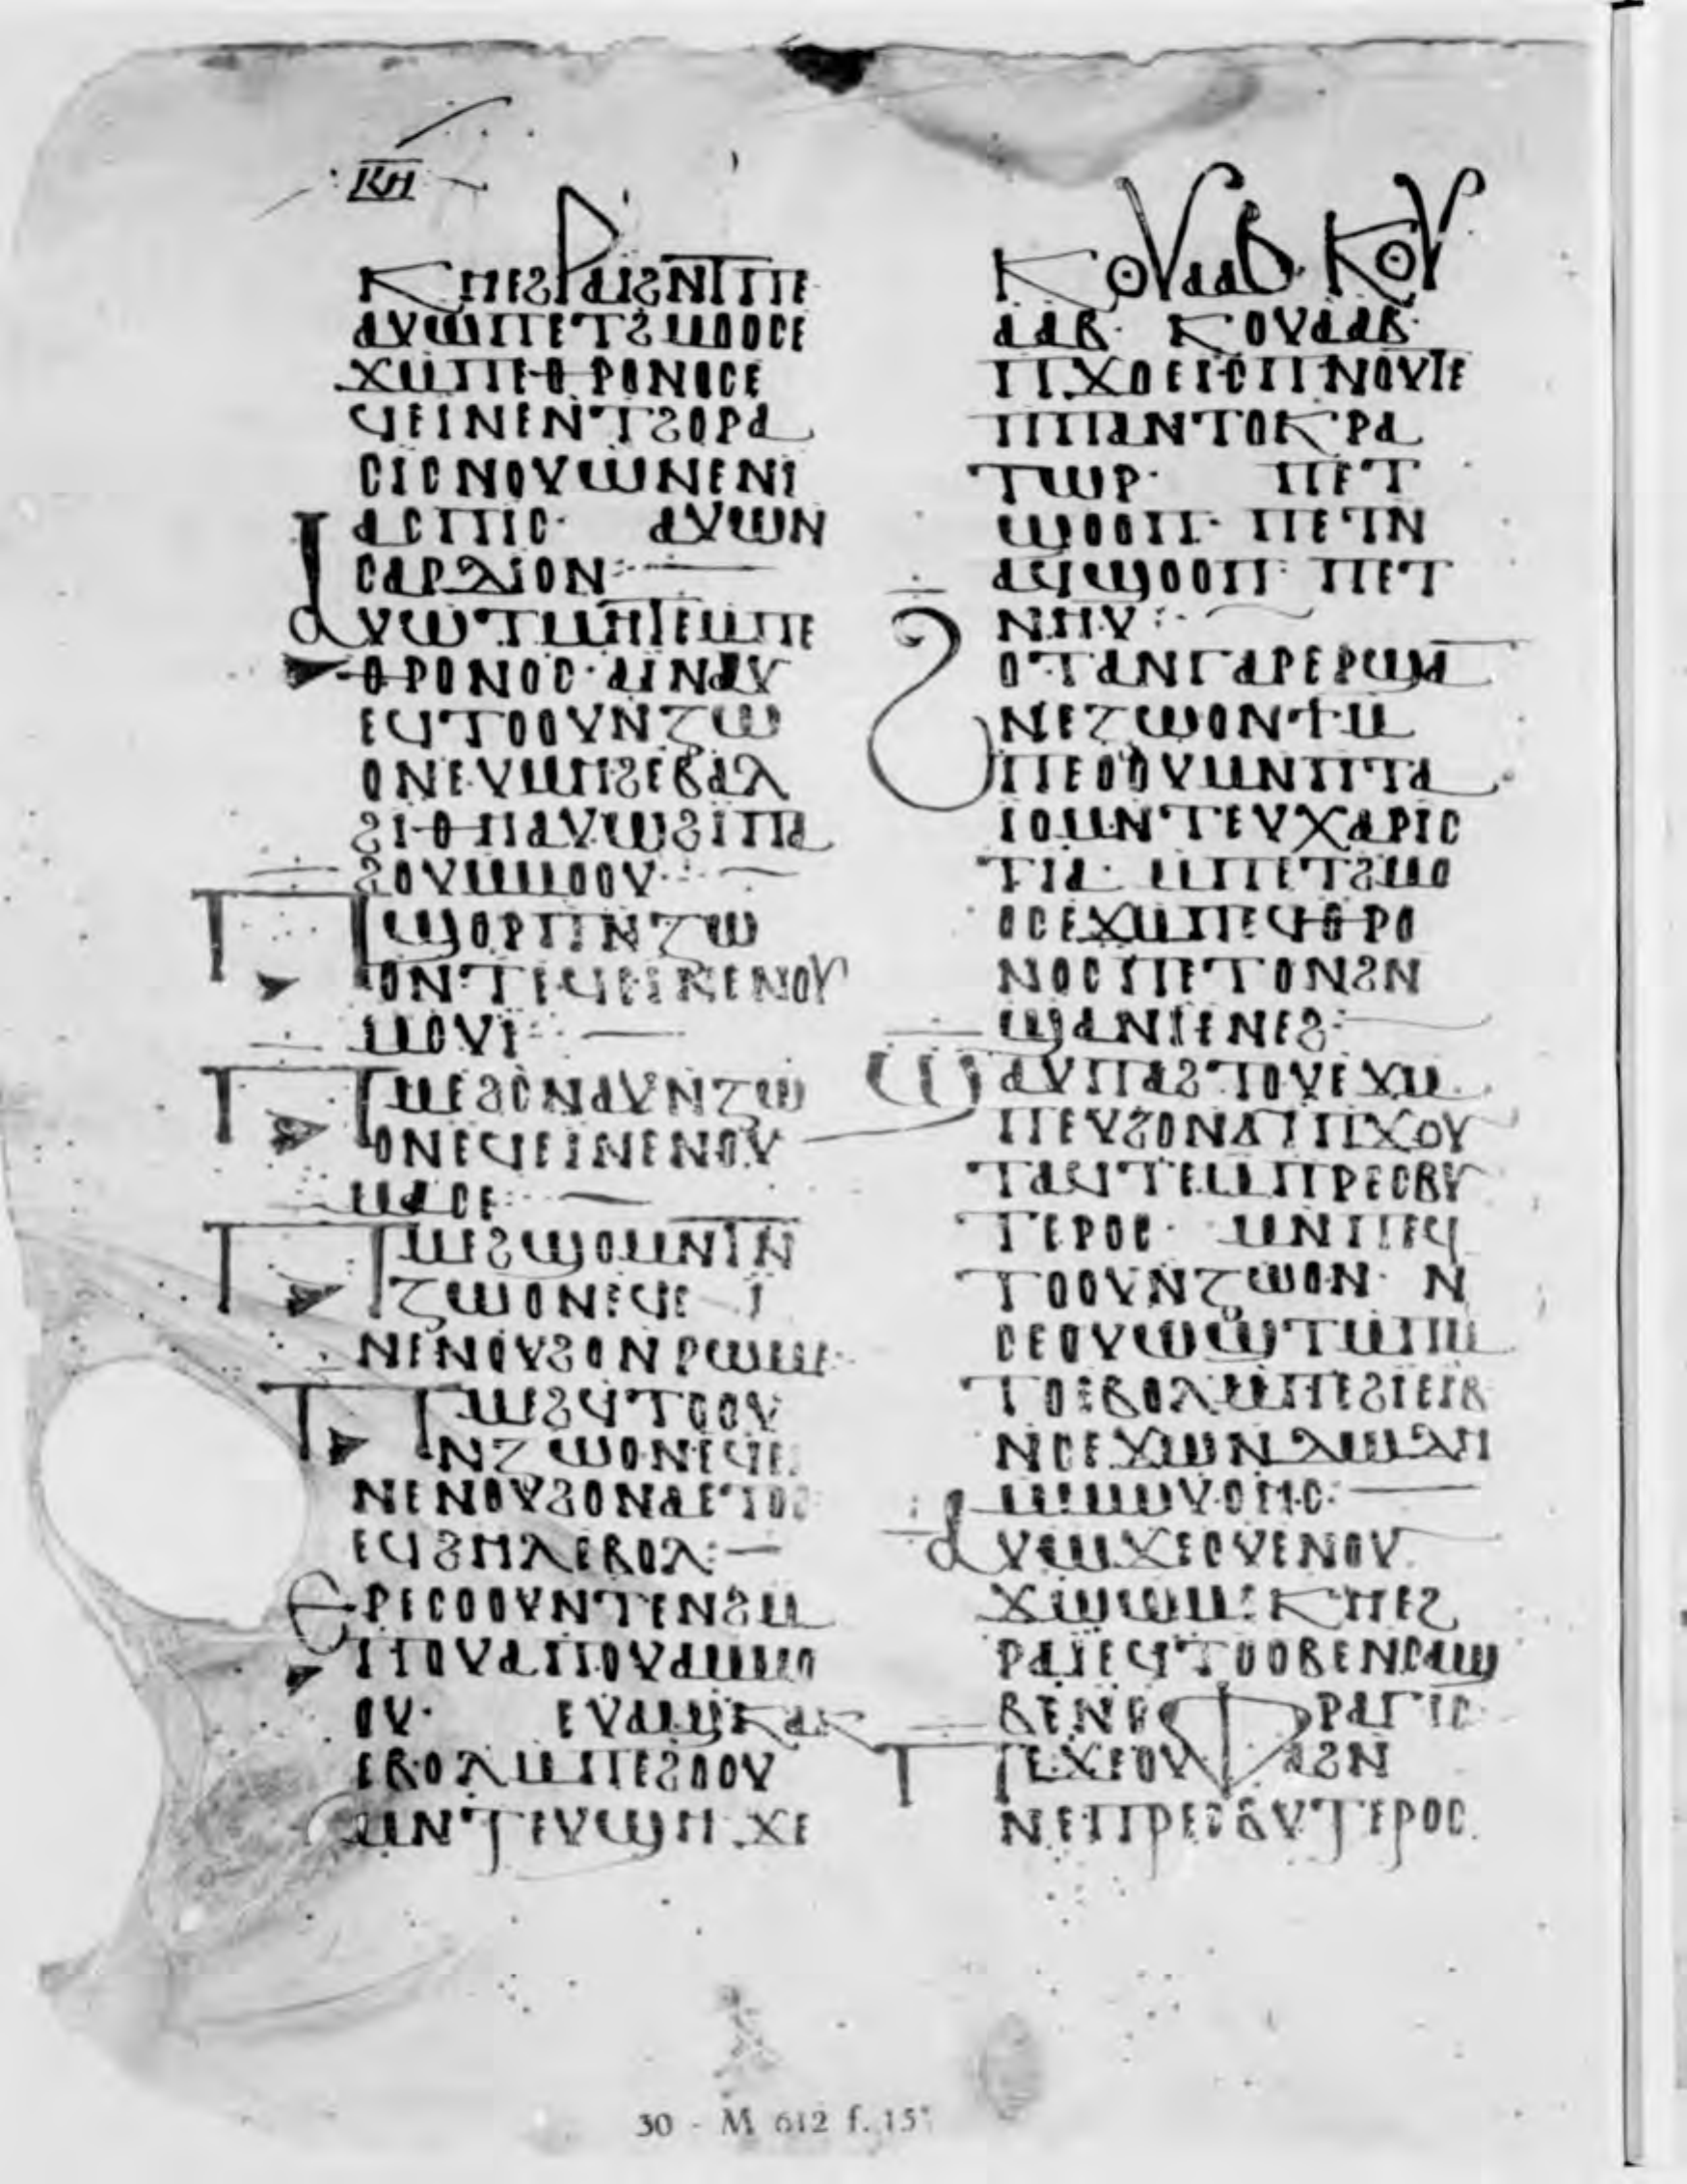 ⲕⲏ
ⲕⲏ ⲉϩⲣⲁⲓ ϩⲛ ⲧⲡⲉ
ⲁⲩⲱ ⲡⲉⲧϩⲙⲟⲟⲥ ⲉ
ϫⲙ ⲡⲉⲑⲣⲟⲛⲟⲥ ⲉ
ϥⲉⲓⲛⲉ ⲛⲧϩⲟⲣⲁ
ⲥⲓⲥ ⲛⲟⲩⲱⲛⲉ ⲛⲓ
ⲁⲥⲡⲓⲥ· ⲁⲩⲱ ⲛ
ⲥⲁⲣⲇⲓⲟⲛ:
ⲁⲩⲱ ⲧⲙⲏⲧⲉ ⲙⲡⲉ
ⲑⲣⲟⲛⲟⲥ· ⲁⲓⲛⲁⲩ
ⲉϥⲧⲟⲟⲩ ⲛⲍⲱ
ⲟⲛ ⲉⲩⲙⲏϩ ⲉⲃⲁⲗ
ϩⲓ ⲑⲏ ⲁⲩⲱ ϩⲓ ⲡⲁ
ϩⲟⲩ ⲙⲙⲟⲟⲩ:
ⲡϣⲟⲣⲡ ⲛⲍⲱ
ⲟⲛ ⲧⲉϥⲉⲓⲛⲉ ⲛⲟⲩ
ⲙⲟⲩⲓ:
ⲡⲙⲉϩⲥⲛⲁⲩ ⲛⲍⲱ
ⲟⲛ ⲉϥⲉⲓⲛⲉ ⲛⲟⲩ
ⲙⲁⲥⲉ:
ⲡⲙⲉϩϣⲟⲙⲛⲧ ⲛ
ⲍⲱⲟⲛ ⲉϥⲉⲓ
ⲛⲉ ⲛⲟⲩϩⲟ ⲛⲣⲱⲙⲉ·
ⲡⲙⲉϩϥⲧⲟⲟⲩ
ⲛⲍⲱⲟⲛ ⲉϥⲉⲓ
ⲛⲉ ⲛⲟⲩϩⲟ ⲛⲁⲉⲧⲟⲥ
ⲉϥϩⲏⲗ ⲉⲃⲟⲗ:
ⲉⲣⲉ ⲥⲟⲟⲩ ⲛⲧⲉⲛϩ ⲙ
ⲡⲟⲩⲁ ⲡⲟⲩⲁ ⲙⲙⲟ
ⲟⲩ· ⲉⲩⲁϣⲕⲁⲕ
ⲉⲃⲟⲗ ⲙⲡⲉϩⲟⲟⲩ
ⲙⲛ ⲧⲉⲩϣⲏ ϫⲉ
ⲕⲟⲩⲁⲁⲃ· ⲕⲟⲩ
ⲁⲁⲃ· ⲕⲟⲩⲁⲁⲃ·
ⲡϫⲟⲉⲓⲥ ⲡⲛⲟⲩⲧⲉ
ⲡⲡⲁⲛⲧⲟⲕⲣⲁ
ⲧⲱⲣ· ⲡⲉⲧ
ϣⲟⲟⲡ· ⲡⲉⲧⲛ
ⲁϥϣⲟⲟⲡ· ⲡⲉⲧ
ⲛⲏⲩ:
ϩⲟⲧⲁⲛ ⲅⲁⲣ ⲉⲣϣⲁ
ⲛⲉⲍⲱⲟⲛ ϯ ⲙ
ⲡⲉⲟⲟⲩ ⲙⲛ ⲡⲧⲁ
ⲓⲟ ⲙⲛ ⲧⲉⲩⲭⲁⲣⲓⲥ
ⲧⲓⲁ· ⲙⲡⲉⲧϩⲙⲟ
ⲟⲥ ⲉϫⲙ ⲡⲉϥⲑⲣⲟ
ⲛⲟⲥ ⲡⲉⲧⲟⲛϩ ⲛ
ϣⲁ ⲛⲓⲉⲛⲉϩ:
ϣⲁⲩⲡⲁϩⲧⲟⲩ ⲉϫⲙ
ⲡⲉⲩϩⲟ ⲛϭⲓ ⲡϫⲟⲩ
ⲧⲁϥⲧⲉ ⲙⲡⲣⲉⲥⲃⲩ
ⲧⲉⲣⲟⲥ· ⲙⲛ ⲡⲉϥ
ⲧⲟⲟⲩ ⲛⲍⲱⲟⲛ· ⲛ
ⲥⲉⲟⲩⲱϣⲧ ⲙⲡⲙ
ⲧⲟ ⲉⲃⲟⲗ ⲙⲡⲉϩⲓⲉⲓⲃ
ⲛⲥⲉϫⲱ ⲛ
ⲁⲩⲱ ϫⲉ ⲟⲩⲉⲛⲟⲩ
ϫⲱⲱⲙⲉ ⲕⲏ ⲉϩ
ⲣⲁⲓ ⲉϥⲧⲟⲟⲃⲉ ⲛⲥⲁϣ
ⲃⲉ ⲛⲥⲫⲣⲁⲅⲓⲥ·
ⲡⲉϫⲉ ⲟⲩⲁ ϩⲛ
ⲛⲉⲡⲣⲉⲥⲃⲩⲧⲉⲣⲟⲥ
30 - M 612 f. 15ᵛ